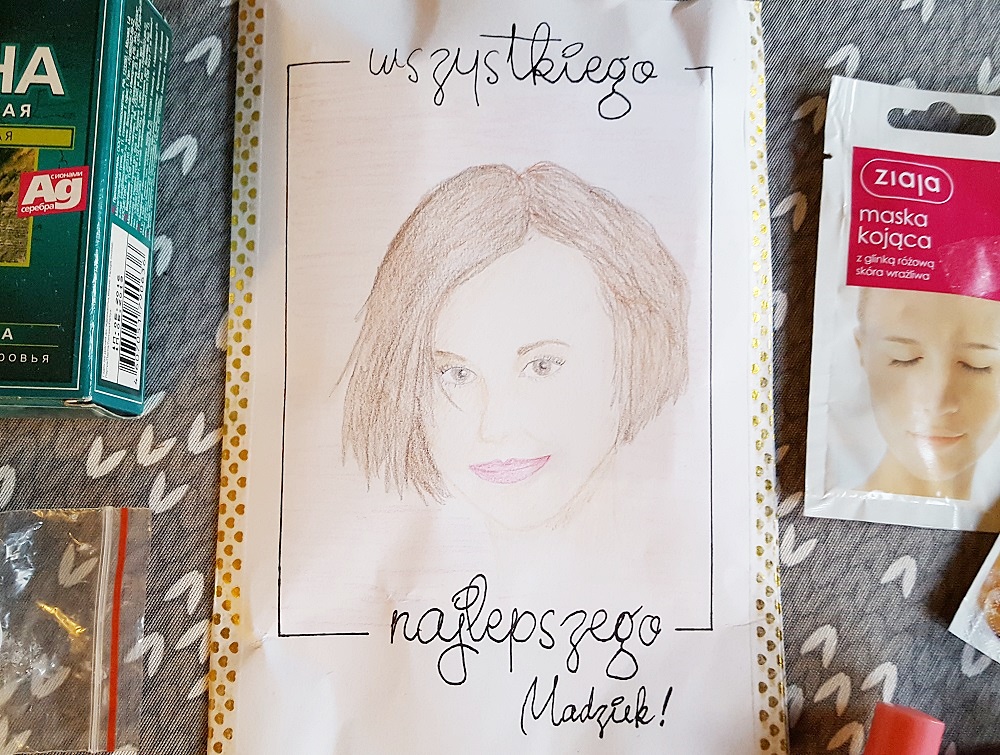 wszystkiego
najlepszego
Madziek!
НА
АЯ
АЯ
с ионами
Ag
серебра
А
ОВЬЯ
ziaja
maska
kojąca
z glinką różową
skóra wrażliwa